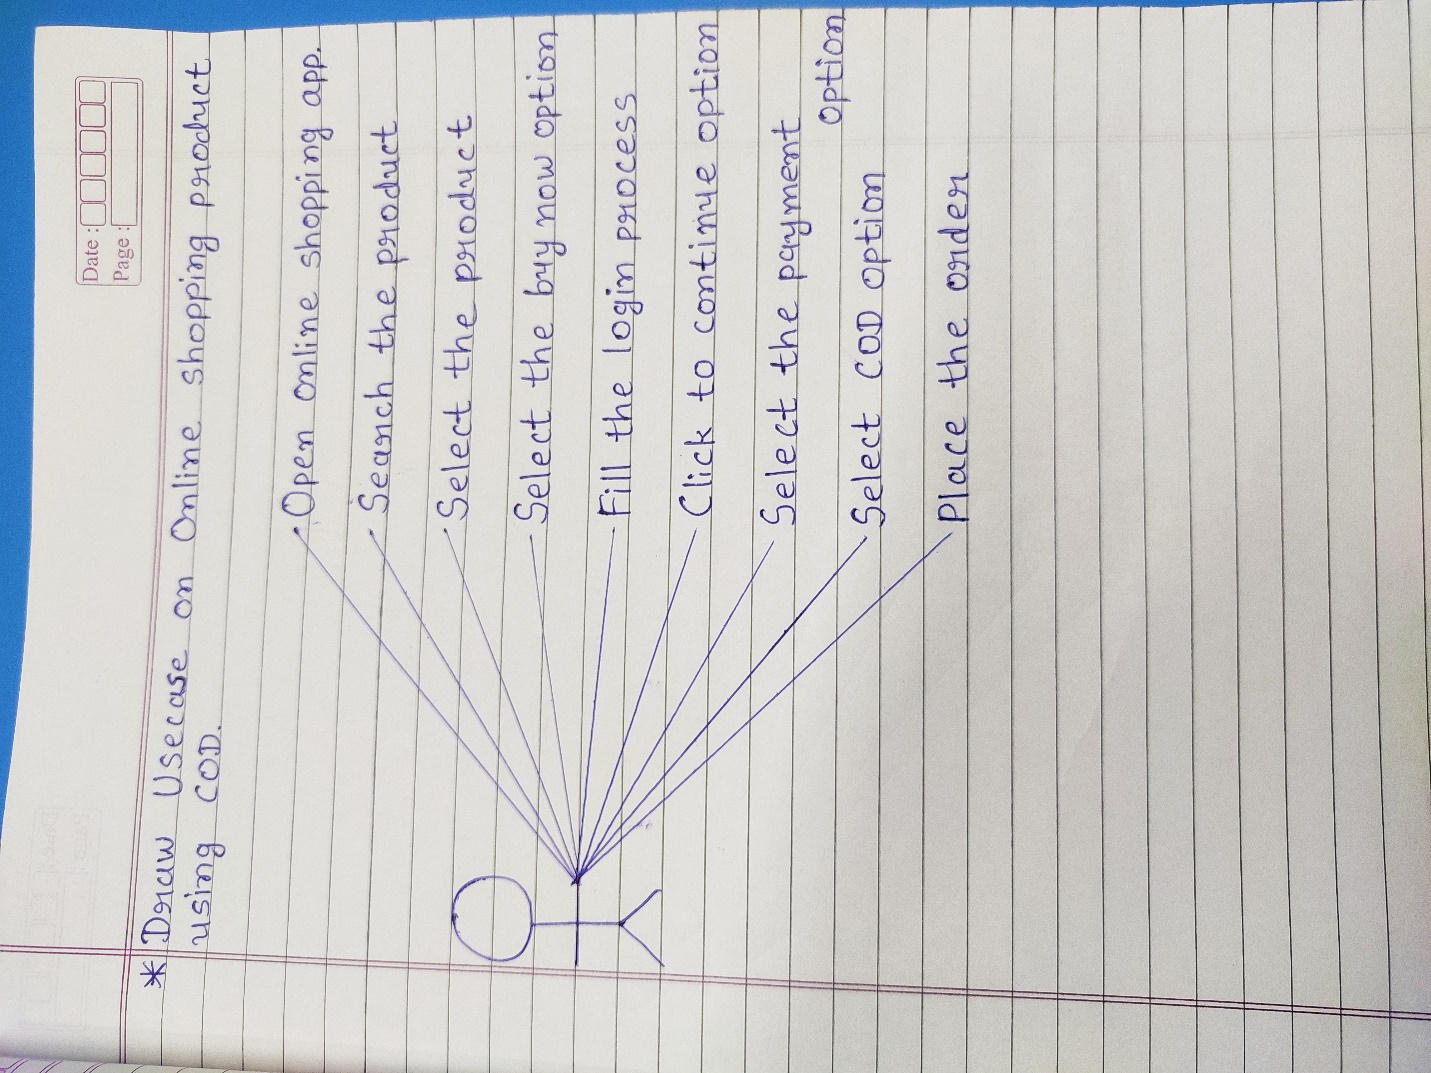 Date :
Page :
* Draw Usecase on Online shopping product
using COD.
Open online shopping app.
Search the product
Select the product
Select the buy now option
Fill the login process
Click to continue option
Select the payment
option
Select COD option
Place the order